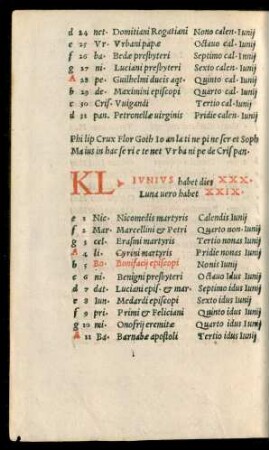 d 24 net- Domitiani Rogatiani Nono calen-Iunij
e 25 Vr- Vrbani papæ Octauo cal-Iunij
f 26 ba- Bedæ presbyteri Septimo cal-Iunij
g 27 ni- Luciani presbyteri Sexto calen-Iunij
A 28 pe- Guilhelmi ducis aqt- Quinto cal-Iunij
b 29 de- Maximini episcopi Quarto cal-Iunij
c 30 Cris- Vuigandi Tertio cal-Iunij
d 31 pan- Petronellæ uirginis Pridie calen-Iunij
Phi lip Crux Flor Goth Io an la ti ne pi ne ser et Soph
Ma ius in hac se ri e te net Vr ba ni pe de Cris pan-
KL IVNIVS habet dies XXX-
Luna uero habet XXIX-
e 1 Nic- Nicomedis martyris Calendis Iunij
f 2 Mar- Marcellini & Petri Quarto non-Iunij
g 3 cel- Erasmi martyris Tertio nonas Iunij
A 4 li- Cyrini martyris Pridie nonas Iunij
b 5 Bo- Bonifacij episcopi Nonis Iunij
c 6 ni- Benigni presbyteri Octauo idus Iunij
d 7 dat- Luciani epis- & mar- Septimo idus Iunij
e 8 Iun- Medardi episcopi Sexto idus Iunij
f 9 pri- Primi & Feliciani Quinto idus Iunij
g 10 mi- Onofrij eremitæ Quarto idus Iunij
A 11 Ba- Barnabæ apostoli Tertio idus Iunij